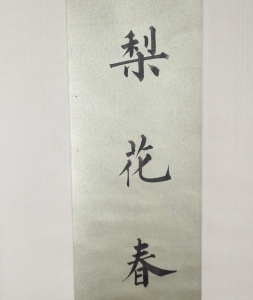 梨花春